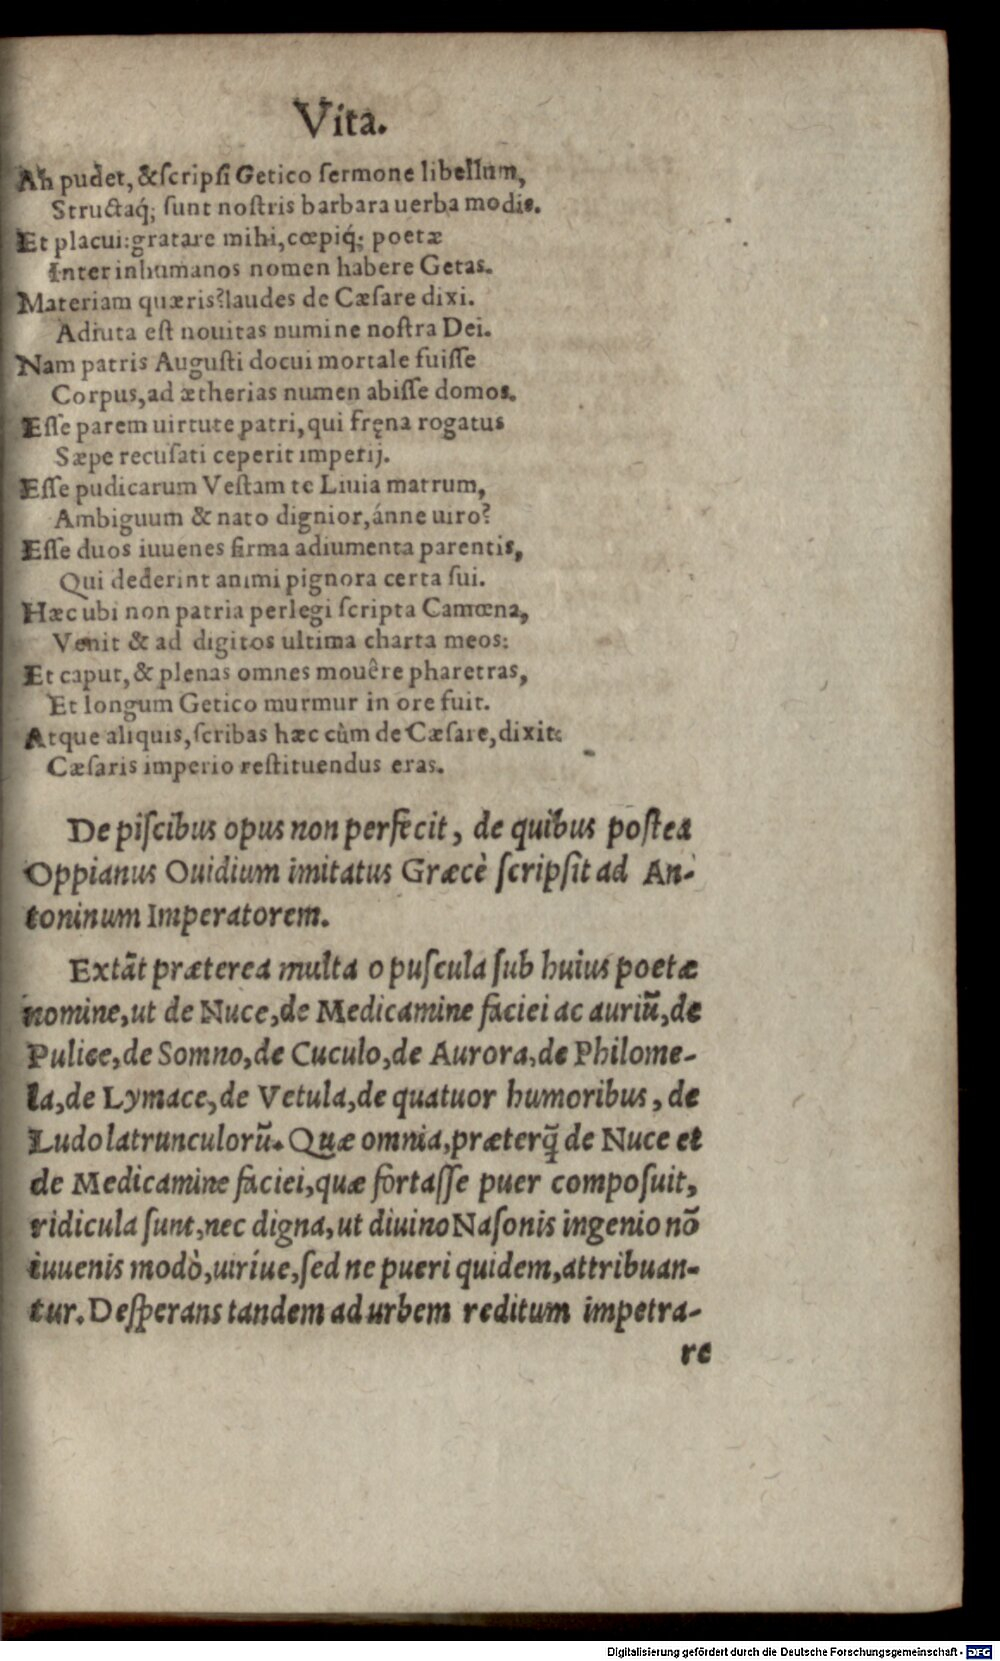 Vita.
Ah pudet, &ſcripſi Getico ſermone libellum,
Structaq́; ſunt noſtris barbara uerba modis.
Et placui:gratare mihi, cœpiq́; poetæ
Inter inhumanos nomen habere Getas.
Materiam quæris?laudes de Cæſare dixi.
Adiuta eſt nouitas numine noſtra Dei.
Nam patris Auguſti docui mortale fuiſſe
Corpus,ad ætherias numen abiſſe domos.
Eſſe parem uirtute patri, qui fręna rogatus
Sæpe recuſati ceperit imperij.
Eſſe pudicarum Veſtam te Liuia matrum,
Ambiguum & nato dignior,ánne uiro?
Eſſe duos iuuenes firma adiumenta parentis,
Qui dederint animi pignora certa ſui.
Hæc ubi non patria perlegi ſcripta Camœna,
Venit & ad digitos ultima charta meos:
Et caput, & plenas omnes mouêre pharetras,
Et longum Getico murmur in ore fuit.
Atque aliquis,ſcribas hæc cùm de Cæſare,dixit:
Cæſaris imperio reſtituendus eras.
De piſcibus opus non perfecit, de quibus poſtea
Oppianus Ouidium imitatus Græcè ſcripſit ad An-
toninum Imperatorem.
Extãt præterea multa opuſcula ſub huius poetæ
nomine,ut de Nuce,de Medicamine faciei ac auriũ,de
Pulice,de Somno,de Cuculo,de Aurora,de Philome-
la,de Lymace,de Vetula,de quatuor humoribus, de
Ludo latrunculorũ. Quæ omnia,præterq̃ de Nuce et
de Medicamine faciei,quæ fortaſſe puer compoſuit,
ridicula ſunt,nec digna,ut diuino Naſonis ingenio nõ
iuuenis modò,uiríue,ſed ne pueri quidem,attribuan-
tur. Deſperans tandem ad urbem reditum impetra-
re
Digitalisierung gefördert durch die Deutsche Forschungsgemeinschaft - DFG